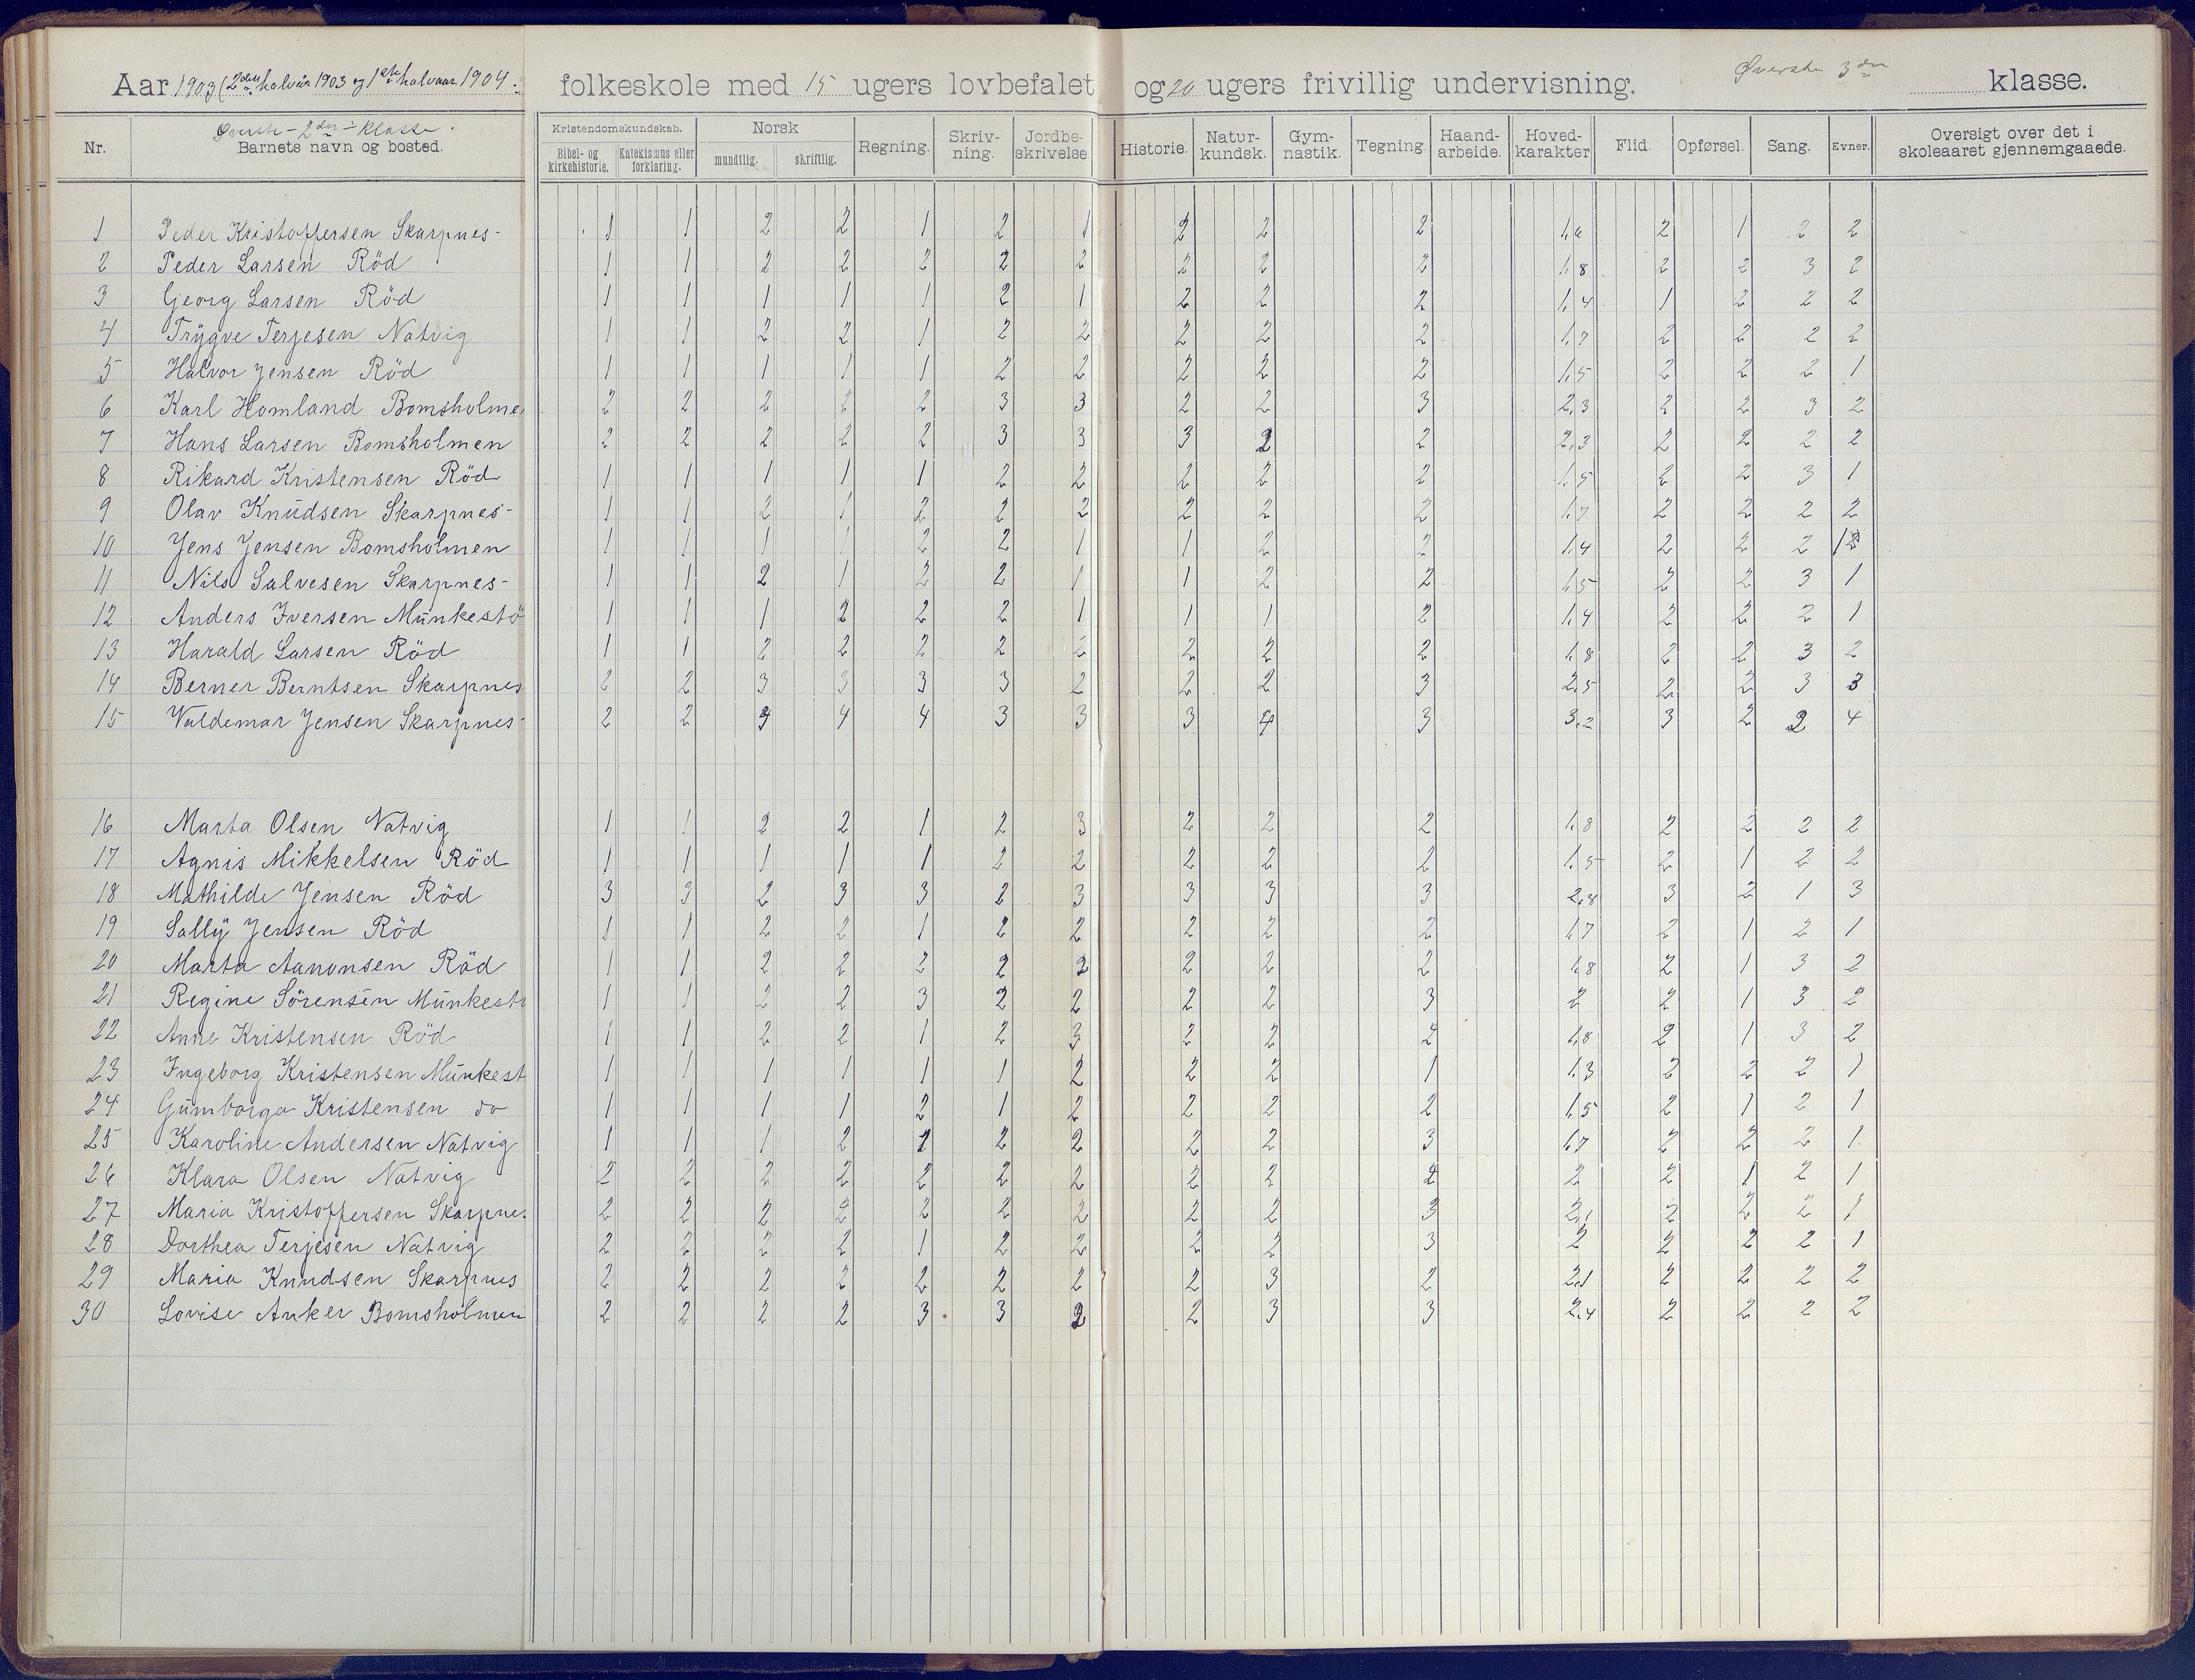 Aar 1903 (2den halvår 1903 og 1ste halvaar 1904. folkeskole med 15 ugers lovbefalet og 20 ugers frivillig undervisning. Øverste 3die klasse.
Nr. Øverste - 2den klasse. Barnets navn og bosted. Kristendomskundskab. Bibel- og kirkehistorie. Katekismus eller forklaring. Norsk mundtlig. skriftlig. Regning. Skriv-ning. Jordbe-skrivelse. Historie. Natur-kundsk. Gym-nastik. Tegning. Haand-arbeide. Hoved-karakter Flid. Opførsel. Sang. Evner. Oversigt over det i skoleaaret gjennemgaaede.
1 Peder Kristoffersen Skarpnes- 1 1 2 2 1 2 1 2 2 2 1,6 2 1 2 2
2 Peder Larsen Röd 1 1 2 2 2 2 2 2 2 2 1,8 2 2 3 2
3 Georg Larsen Röd 1 1 1 1 1 2 1 2 2 2 1,4 1 2 2 2
4 Trygve Terjesen Natvig 1 1 2 2 1 2 2 2 2 2 1,7 2 2 2 2
5 Halvor Jensen Röd 1 1 1 1 1 2 2 2 2 2 1,5 2 2 2 1
6 Karl Homland Bomsholme 2 2 2 2 2 3 3 2 2 3 2,3 2 2 3 2
7 Hans Larsen Bomsholmen 2 2 2 2 2 3 3 3 2 2 2,3 2 2 2 2
8 Rikard Kristensen Röd 1 1 1 1 1 2 2 2 2 2 1,5 2 2 3 1
9 Olav Knudsen Skarpnes- 1 1 2 1 2 2 2 2 2 2 1,7 2 2 2 2
10 Jens Jensen Bomsholmen 1 1 1 1 2 2 1 1 2 2 1,4 2 2 2 1
11 Nils Salvesen Skarpnes- 1 1 2 1 2 2 1 1 2 2 1,5 2 2 3 1
12 Anders Iversen Munkestö 1 1 1 2 2 2 1 1 1 2 1,4 2 2 2 1
13 Harald Larsen Röd 1 1 2 2 2 2 2 2 2 2 1,8 2 2 3 2
14 Berner Berntsen Skarpnes 2 2 3 3 3 3 2 2 2 3 2,5 2 2 3 3
15 Valdemar Jensen Skarpnes- 2 2 4 4 3 3 3 4 3 3,2 3 2 2 4
16 Marta Olsen Natvig 1 1 2 2 1 2 3 2 2 2 1,8 2 2 2 2
17 Agnis Mikkelsen Röd 1 1 1 1 1 2 2 2 2 2 1,5 2 1 2 2
18 Mathilde Jensen Röd 3 3 2 3 3 2 3 3 3 3 2,8 3 2 1 3
19 Sally Jensen Röd 1 1 2 2 1 2 2 2 2 2 1,7 2 1 2 1
20 Marta Aanonsen Röd 1 1 2 2 2 2 2 2 2 2 1,8 2 1 3 2
21 Regine Sörensen Munkestö 1 1 2 2 3 2 2 2 2 3 2 2 1 3 2
22 Anne Kristensen Röd 1 1 2 2 1 2 3 2 2 2 1,8 2 1 3 2
23 Ingeborg Kristensen Munkest 1 1 1 1 1 1 2 2 2 1 1,3 2 2 2 1
24 Gumborga Kristensen do 1 1 1 1 2 1 2 2 2 2 1,5 2 1 2 1
25 Karoline Andersen Natvig 1 1 1 2 2 2 2 2 3 1,7 2 2 2 1
26 Klara Olsen Natvig 2 2 2 2 2 2 2 2 2 2 2 2 1 2 1
27 Maria Kristoffersen Skarpnes 2 2 2 2 2 2 2 2 2 3 2,1 2 2 2 1
28 Dorthea Terjesen Natvig 2 2 2 2 1 2 2 2 2 3 2 2 2 2 1
29 Maria Knudsen Skarpnes 2 2 2 2 2 2 2 2 3 2 2,1 2 2 2 2
30 Lovise Anker Bomsholmen 2 2 2 2 3 3 2 2 3 3 2,4 2 2 2 2